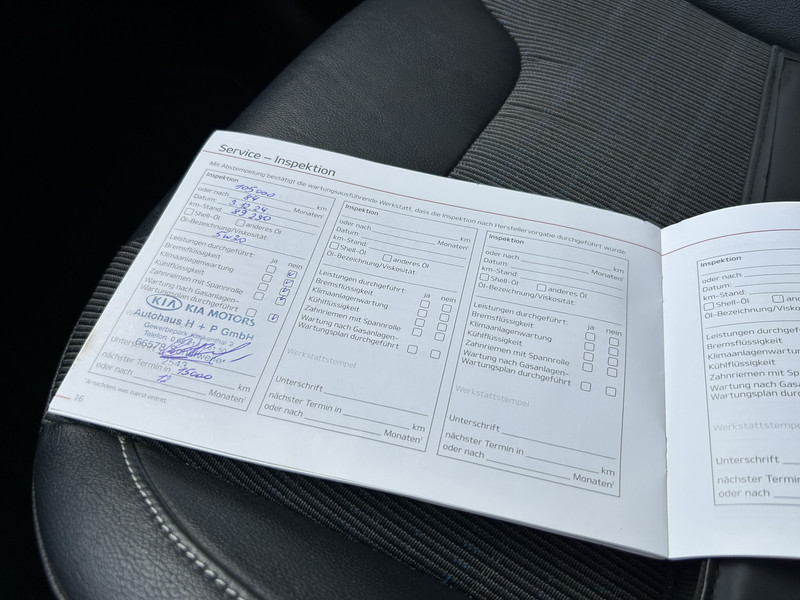 Service – Inspektion
Mit Abstempelung bestätigt die wartungsausführende Werkstatt, dass die Inspektion nach Herstellervorgabe durchgeführt wurde.
Inspektion
105000 km
oder nach 84 Monaten¹
Datum:
km-Stand: 89 290
Shell-Öl anderes Öl
Öl-Bezeichnung/Viskosität:
5W20
Leistungen durchgeführt: ja nein
Bremsflüssigkeit
Klimaanlagenwartung
Kühlflüssigkeit
Zahnriemen mit Spannrolle
Wartung nach Gasanlagen-
Wartungsplan durchgeführt
KIA KIA MOTORS
Autohaus H + P GmbH
Unterschrift
nächster Termin in 15000 km
oder nach 12 Monaten¹
16
Inspektion
km
oder nach Monaten¹
Datum:
km-Stand:
Shell-Öl anderes Öl
Öl-Bezeichnung/Viskosität:
Leistungen durchgeführt: ja nein
Bremsflüssigkeit
Klimaanlagenwartung
Kühlflüssigkeit
Zahnriemen mit Spannrolle
Wartung nach Gasanlagen-
Wartungsplan durchgeführt
Werkstattstempel
Unterschrift
nächster Termin in km
oder nach Monaten¹
Inspektion
km
oder nach Monaten¹
Datum:
km-Stand:
Shell-Öl anderes Öl
Öl-Bezeichnung/Viskosität:
Leistungen durchgeführt: ja nein
Bremsflüssigkeit
Klimaanlagenwartung
Kühlflüssigkeit
Zahnriemen mit Spannrolle
Wartung nach Gasanlagen-
Wartungsplan durchgeführt
Werkstattstempel
Unterschrift
nächster Termin in km
oder nach Monaten¹
Inspektion
oder nach
Datum:
km-Stand:
Shell-Öl
Öl-Bezeichnung/Viskosi
Leistungen durchgefü
Bremsflüssigkeit
Klimaanlagenwartung
Kühlflüssigkeit
Zahnriemen mit Span
Wartung nach Gasa
Wartungsplan durc
Werkstattstempe
Unterschrift
nächster Termin
oder nach